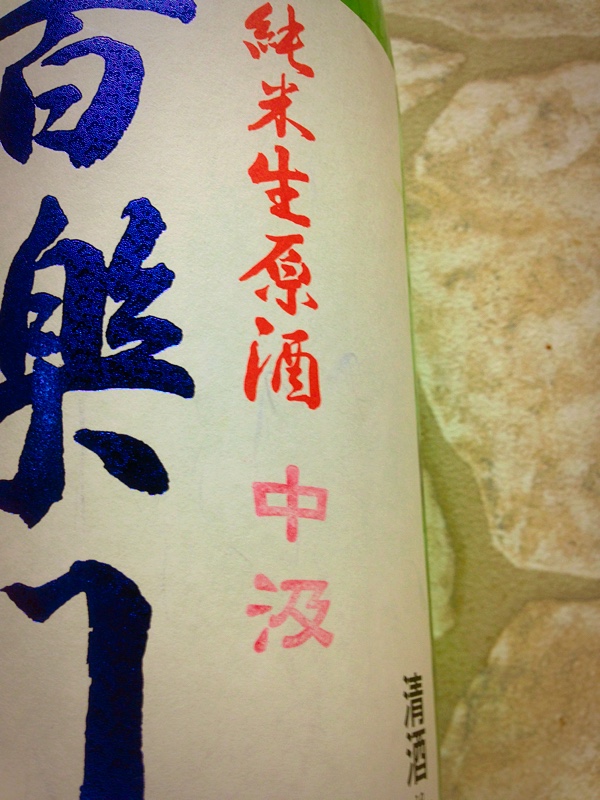 清酒
純米生原酒 中汲
百樂门